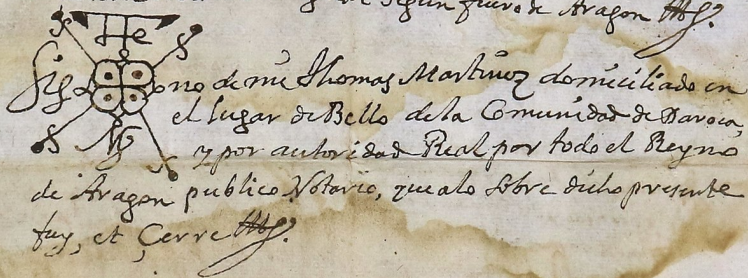 de Segun fuero de Aragon
Sig no de mi Thomas Martinez domiciliado en
el lugar de Bello de la Comunidad de Daroca,
y por autoridad Real por todo el Reyno
de Aragon publico Notario, que a lo sobre dicho presente
fuy, et Cerre